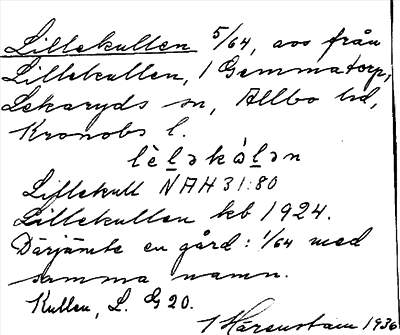 Lillekullen 5/64, avs från
Lillekullen, 1 Gemmatorp,
Lekaryds sn, Allbo hd,
Kronobs l.
lèḷəkáḷən
Lillekull NAH 31:80
Lillekullen kb 1924.
Därjämte en gård: 1/64 med
samma namn.
Kullen, L. G 20.
1936